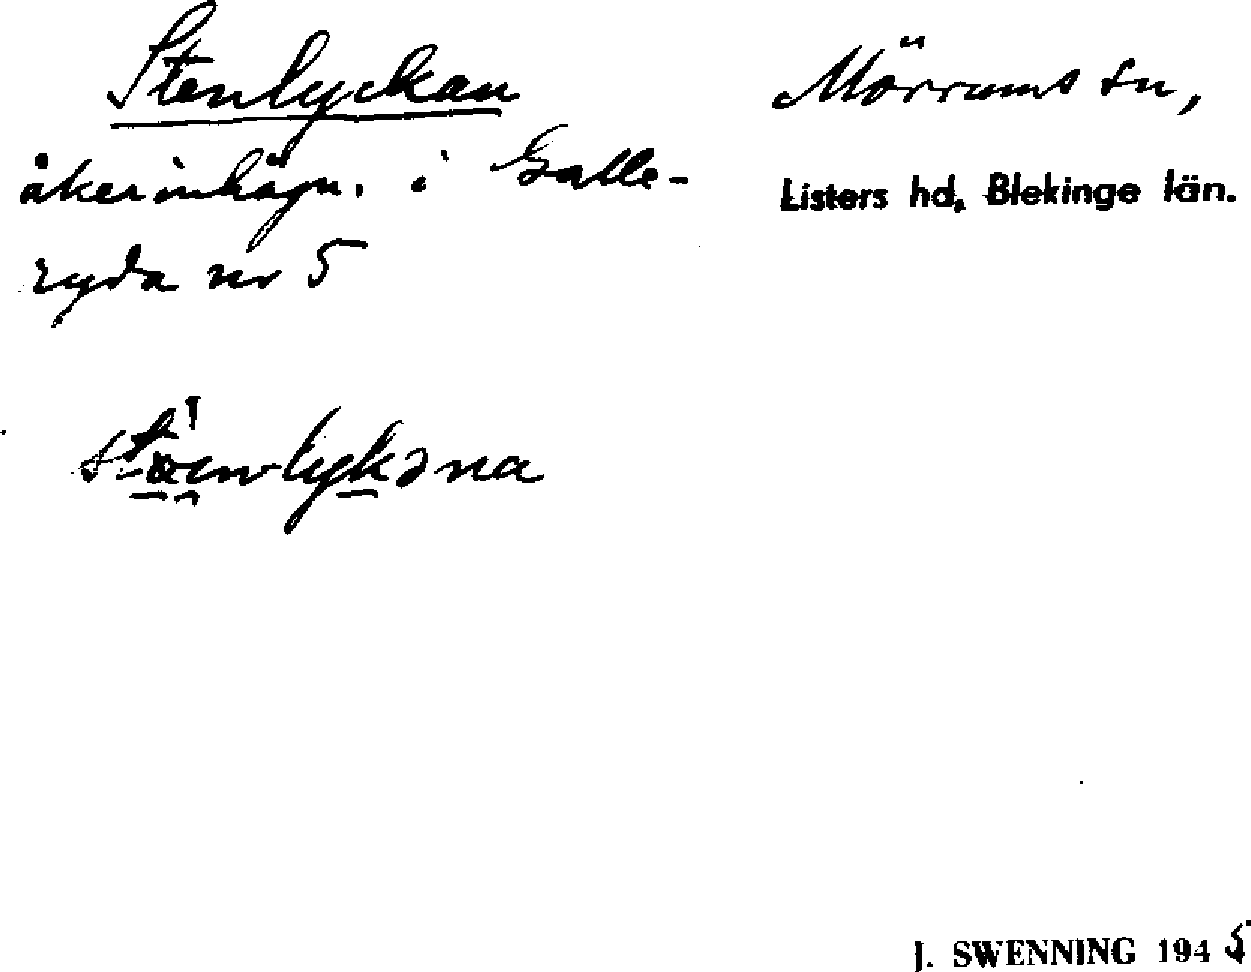 Stenlyckan
åkerinhägn. i Galle-
ryda nr 5
Mörrums sn,
Listers hd, Blekinge län.
J. SWENNING 1945